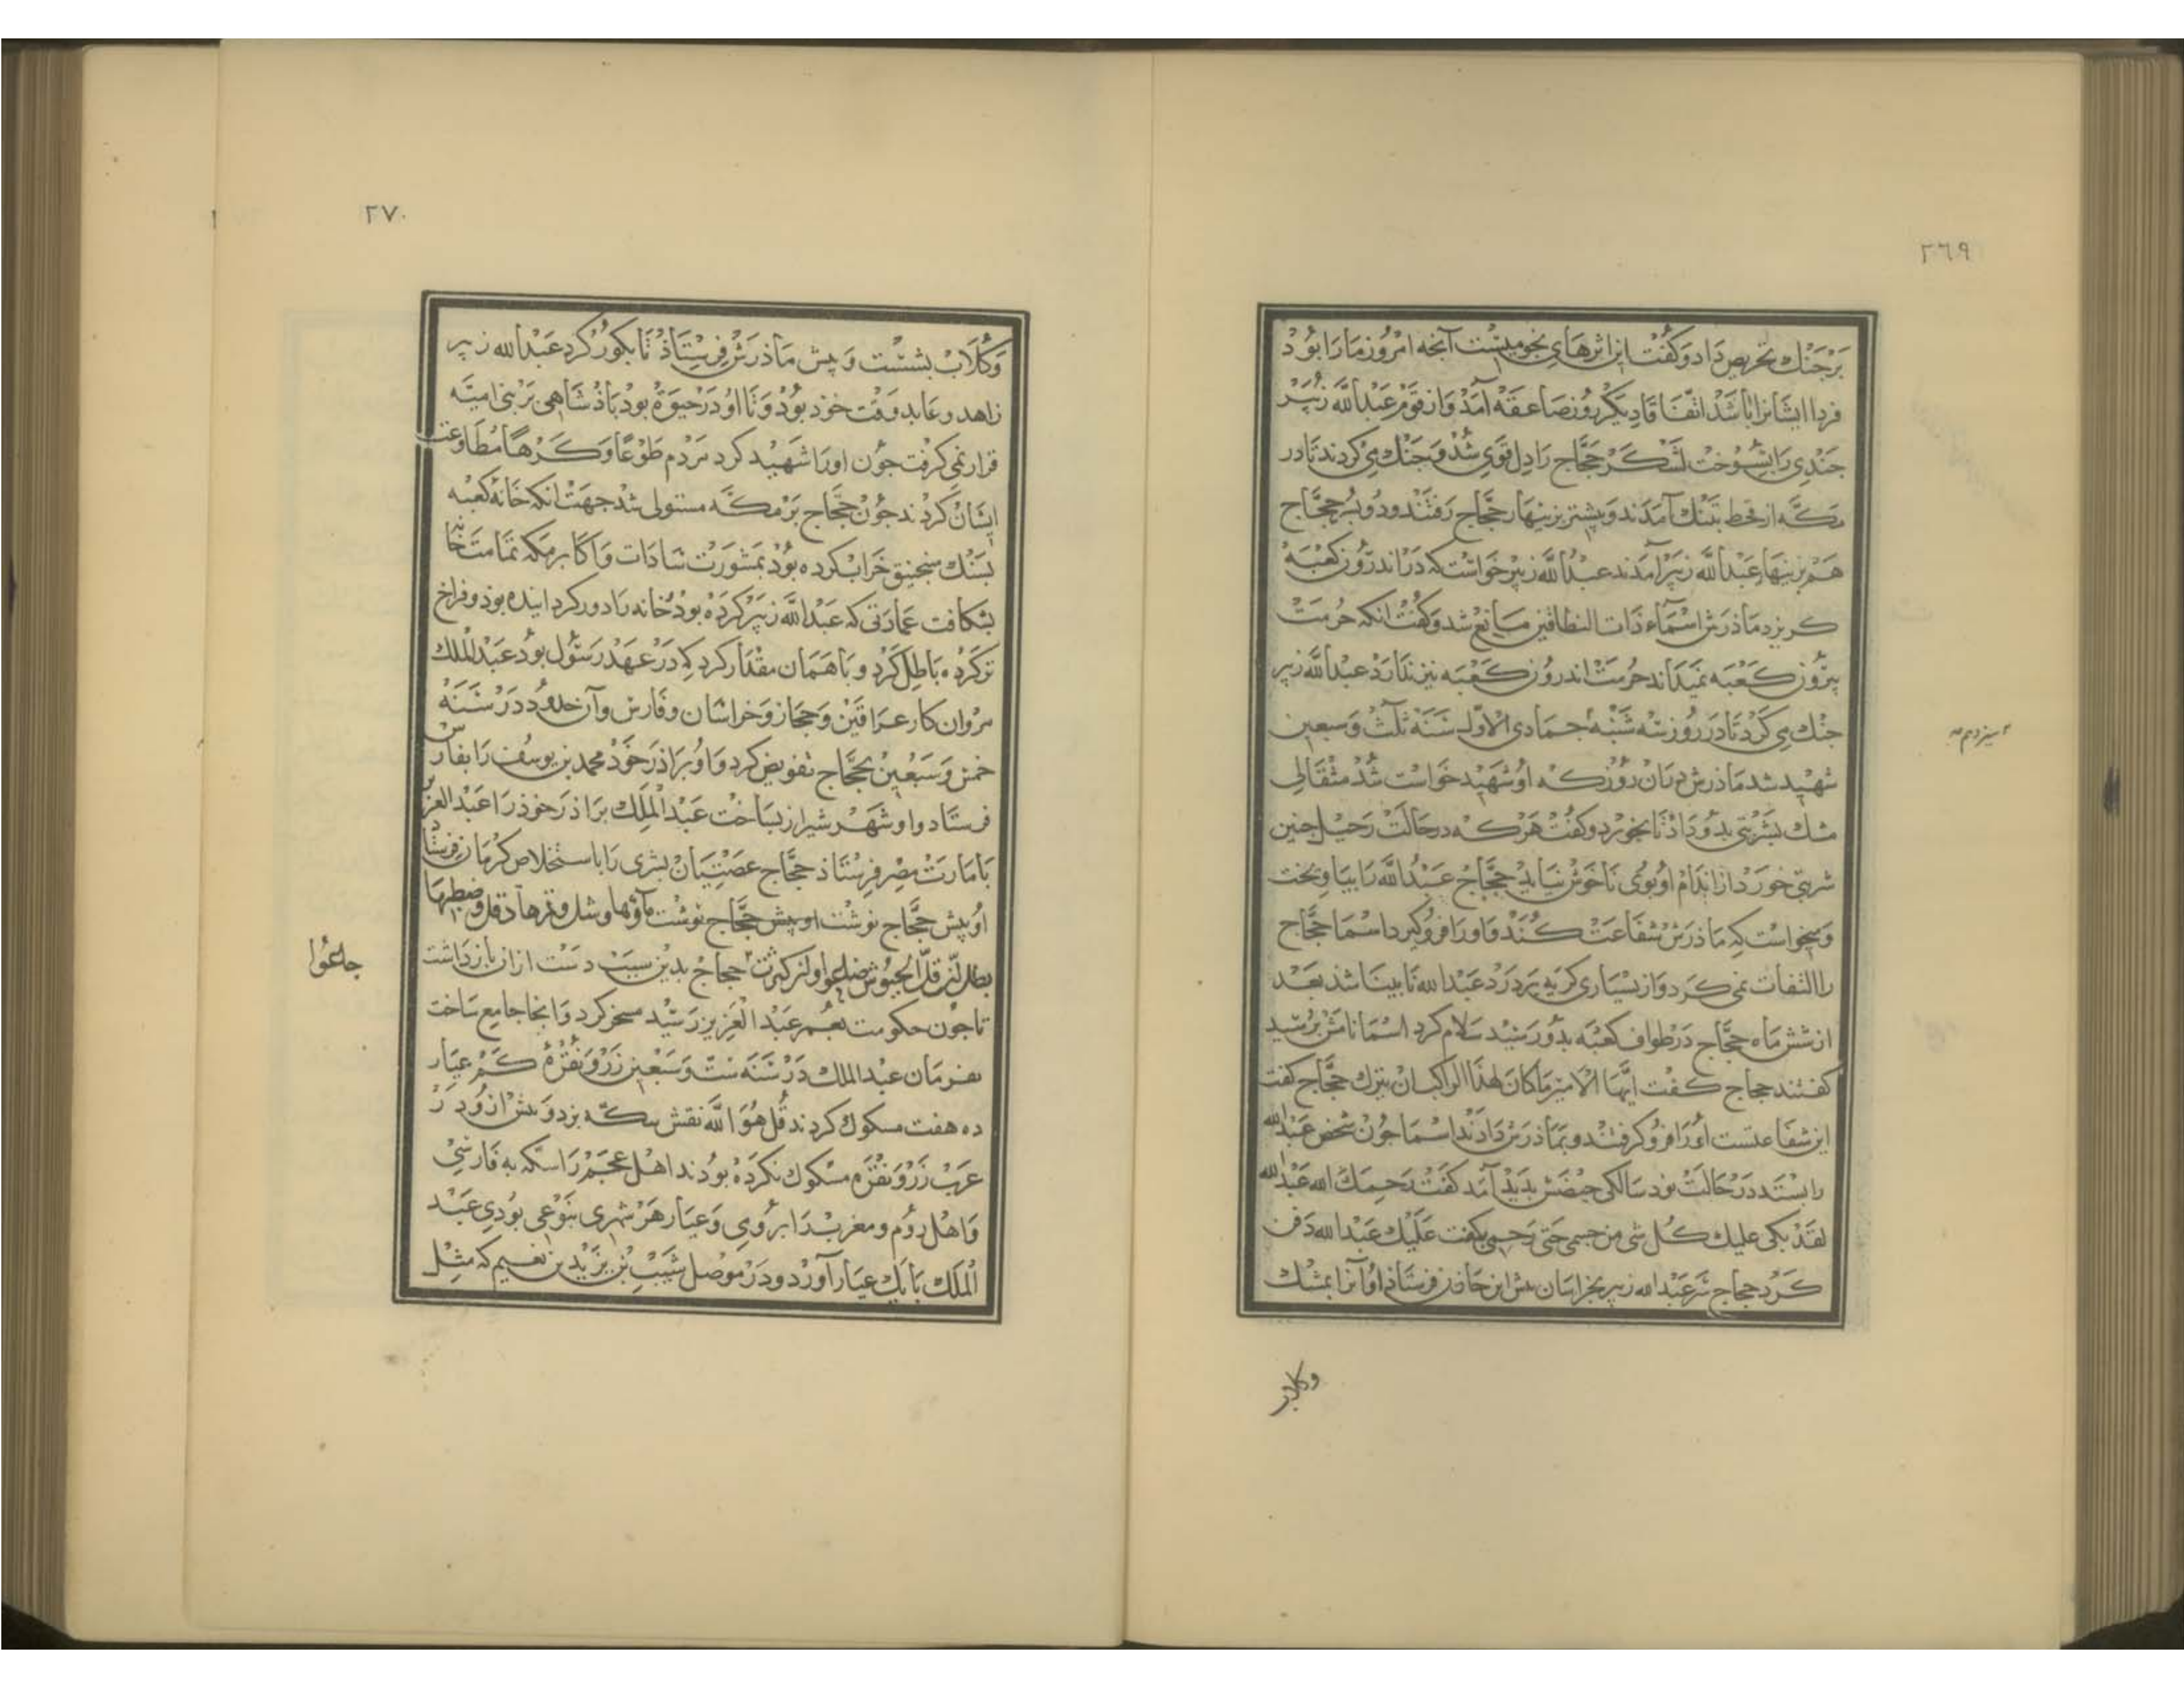 ٢٦٩
بر جنك تحريص داد و كفت اين اثرهاى نجوميست آنجه امروز ما را بود
فردا ايشانرا باشد اتفاقا ديكر روز صاعقه آمد و از قوم عبد الله زبير
جندى را بسوخت لشكر حجاج را دل قوى شد و جنك مى كردند تا در
مكه از قحط بتنك آمدند و بيشتر بزينهار حجاج رفتند و دو بسر حجاج
هم بزينهار عبد الله زبير آمدند عبد الله زبير خواست كه در اندرون كعبه
كريزد ماذرش اسماء ذات النطاقين مانع شد و كفت انكه حرمت
بيرون كعبه نميداند حرمت اندرون كعبه نيز ندارد عبد الله زبير
جنك مى كرد تا در روز سه شنبه جمادى الاول سنه ثلث و سبعين
شهيد شد ماذرش دران روز كه او شهيد خواست شد مثقالى
مشك بشربتى بدو داد تا بخورد و كفت هر كه در حالت رحيل جنين
شربتى خورد از اندام او بوى ناخوش نيايد حجاج عبد الله را بياويخت
و ميخواست كه ماذرش شفاعت كند و او را فرو كيرد اسما حجاج
را التفات نمى كرد و از بسيارى كريه بر درد عبد الله نابينا شد بعد
از شش ماه حجاج در طواف كعبه بدو رسيد سلام كرد اسما نامش برسيد
كفتند حجاج كفت ايها الامير ما كان لهذا الراكب ان ينزل حجاج كفت
اين شفاعتست او را فرو كرفتند و بماذرش دادند اسما جون شخص عبد الله
را بستد در حالت نود سالكى حيضش بديد آمد كفت رحمك الله عبد الله
لقد بكى عليك كل شى من جسمى حتى رحمى بكيت عليك عبد الله دفن
كرد حجاج سر عبد الله زبير بخراسان بيش ابن خازن فرستاد او آنرا بمشك
وكلاب
٢٧٠
وكلاب بشست و بيش ماذرش فرستاذ تا بكور كرد عبد الله زبير
زاهد و عابد وقت خوذ بود و تا او در حيوة بود باذشاهى بر بنى اميه
قرار نمى كرفت جون او را شهيد كرد مردم طوعا و كرها مطاوعت
ايشان كردند جون حجاج بر مكه مستولى شد جهت انكه خانه كعبه
بسنك منجنيق خراب كرده بود بمشورت سادات و اكابر مكه تمامت خانه
بشكافت عمارتى كه عبد الله زبير كرده بود و خانه را دور كردانيده بود و فراخ
تر كرده باطل كرد و با همان مقدار كرد كه در عهد رسول بود عبد الملك
مروان كار عراقين و حجاز و خراسان و فارس و آن حدود در سنه
خمس و سبعين بحجاج تفويض كرد و او براذر خوذ محمد بن يوسف را بفارس
فرستاد و او شهر شيراز بساخت عبد الملك براذر خوذ را عبد العزيز
بامارت مصر فرستاذ حجاج عضتيان بشرى را باستخلاص كرمان فرستاد
او بيش حجاج نوشت او بيش حجاج نوشت ماؤها وشل و تمرها دقل و
بطل لئن قل الجيوش ضاعوا ولئن كثرت حجاج بدين سبب دست ازان بازداشت
جاعوا
تا جون حكومت بعمر عبد العزيز رسيد مسخر كرد و انجا جامع ساخت
بفرمان عبد الملك در سنه ست و سبعين زر و نقره كم عيار
ده هفت مسكوك كردند قل هو الله نقش سكه بزد و بيش از و در
عرب زر و نقره مسكوك نكرده بودند اهل عجم را سكه به فارسى
و اهل روم و مغرب را برومى و عيار هر شهرى بنوعى بودى عبد
الملك با يك عيار آورد و در موصل شبيب بن يزيد بن نعيم كه مثل